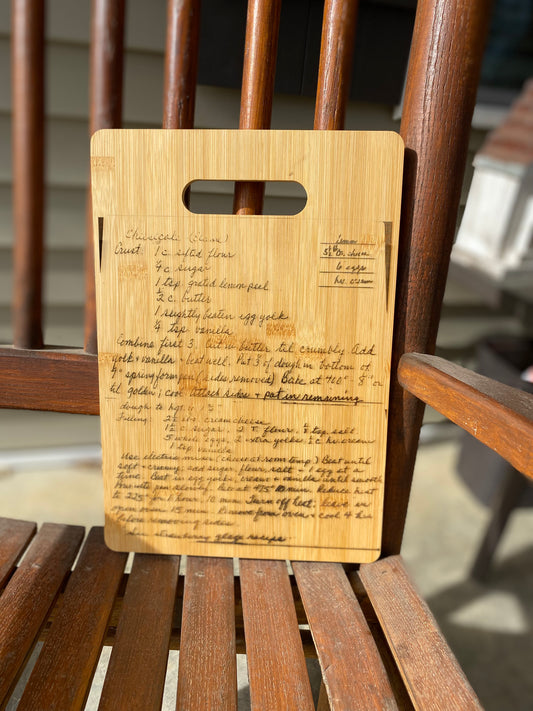 Cheesecake (Classic)
Crust: 1 c. sifted flour
¼ c. sugar
1 tsp. grated lemon peel
½ c. butter
1 slightly beaten egg yolk
¼ tsp. vanilla
1 lemon
6 eggs
Combine first 3. Cut in butter til crumbly. Add
yolk + vanilla + beat well. Put ⅓ of dough in bottom of
9" springform pan (sides removed) Bake at 400° - 8" or
til golden; cool. Attach sides + pat in remaining
dough to hgt. of 1¾"
Filling: cream cheese
c. sugar, flour, ¼ tsp salt
5 whole eggs, 2 extra yolks, ¼ c. hv. cream
1 tsp. vanilla
Use electric mixer (cheese at room temp) Beat until
soft + creamy, add sugar, flour, salt + 1 egg at a
time. Beat in egg yolks, cream + vanilla until smooth
475° 10 min. Reduce heat
to 225° for 1 hour, 10 min. Turn off heat; leave in
open oven 15 min. Remove from oven + cool 4 hr
before removing sides.
strawberry glaze recipe.